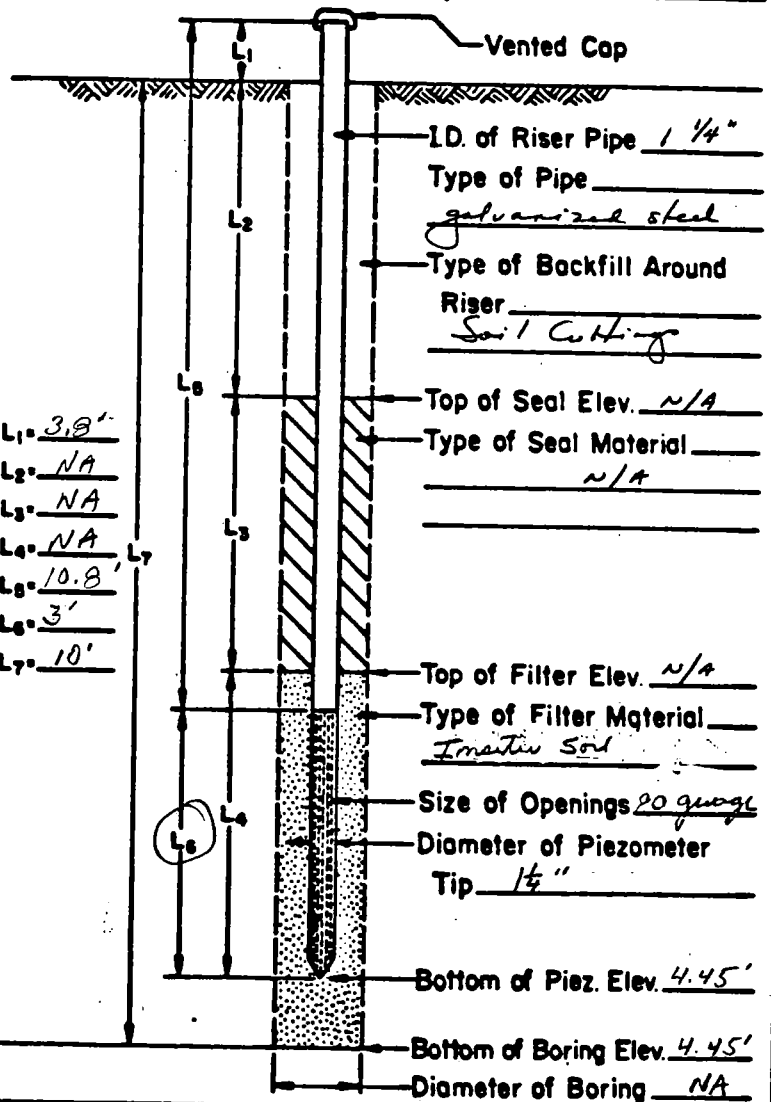 Vented Cap
L1
I.D. of Riser Pipe 1 1/4"
Type of Pipe
galvanized steel
L2
Type of Backfill Around
Riser
Soil Cuttings
L5
Top of Seal Elev. N/A
Type of Seal Material
N/A
L1= 3.8'
L2= NA
L3= NA
L4= NA
L5= 10.8'
L6= 3'
L7= 10'
L7
L3
Top of Filter Elev. N/A
Type of Filter Material
Insitu Soil
Size of Openings guage
L6
L4
Diameter of Piezometer
Tip 1 1/4"
Bottom of Piez. Elev. 4.45'
Bottom of Boring Elev. 4.45'
Diameter of Boring NA